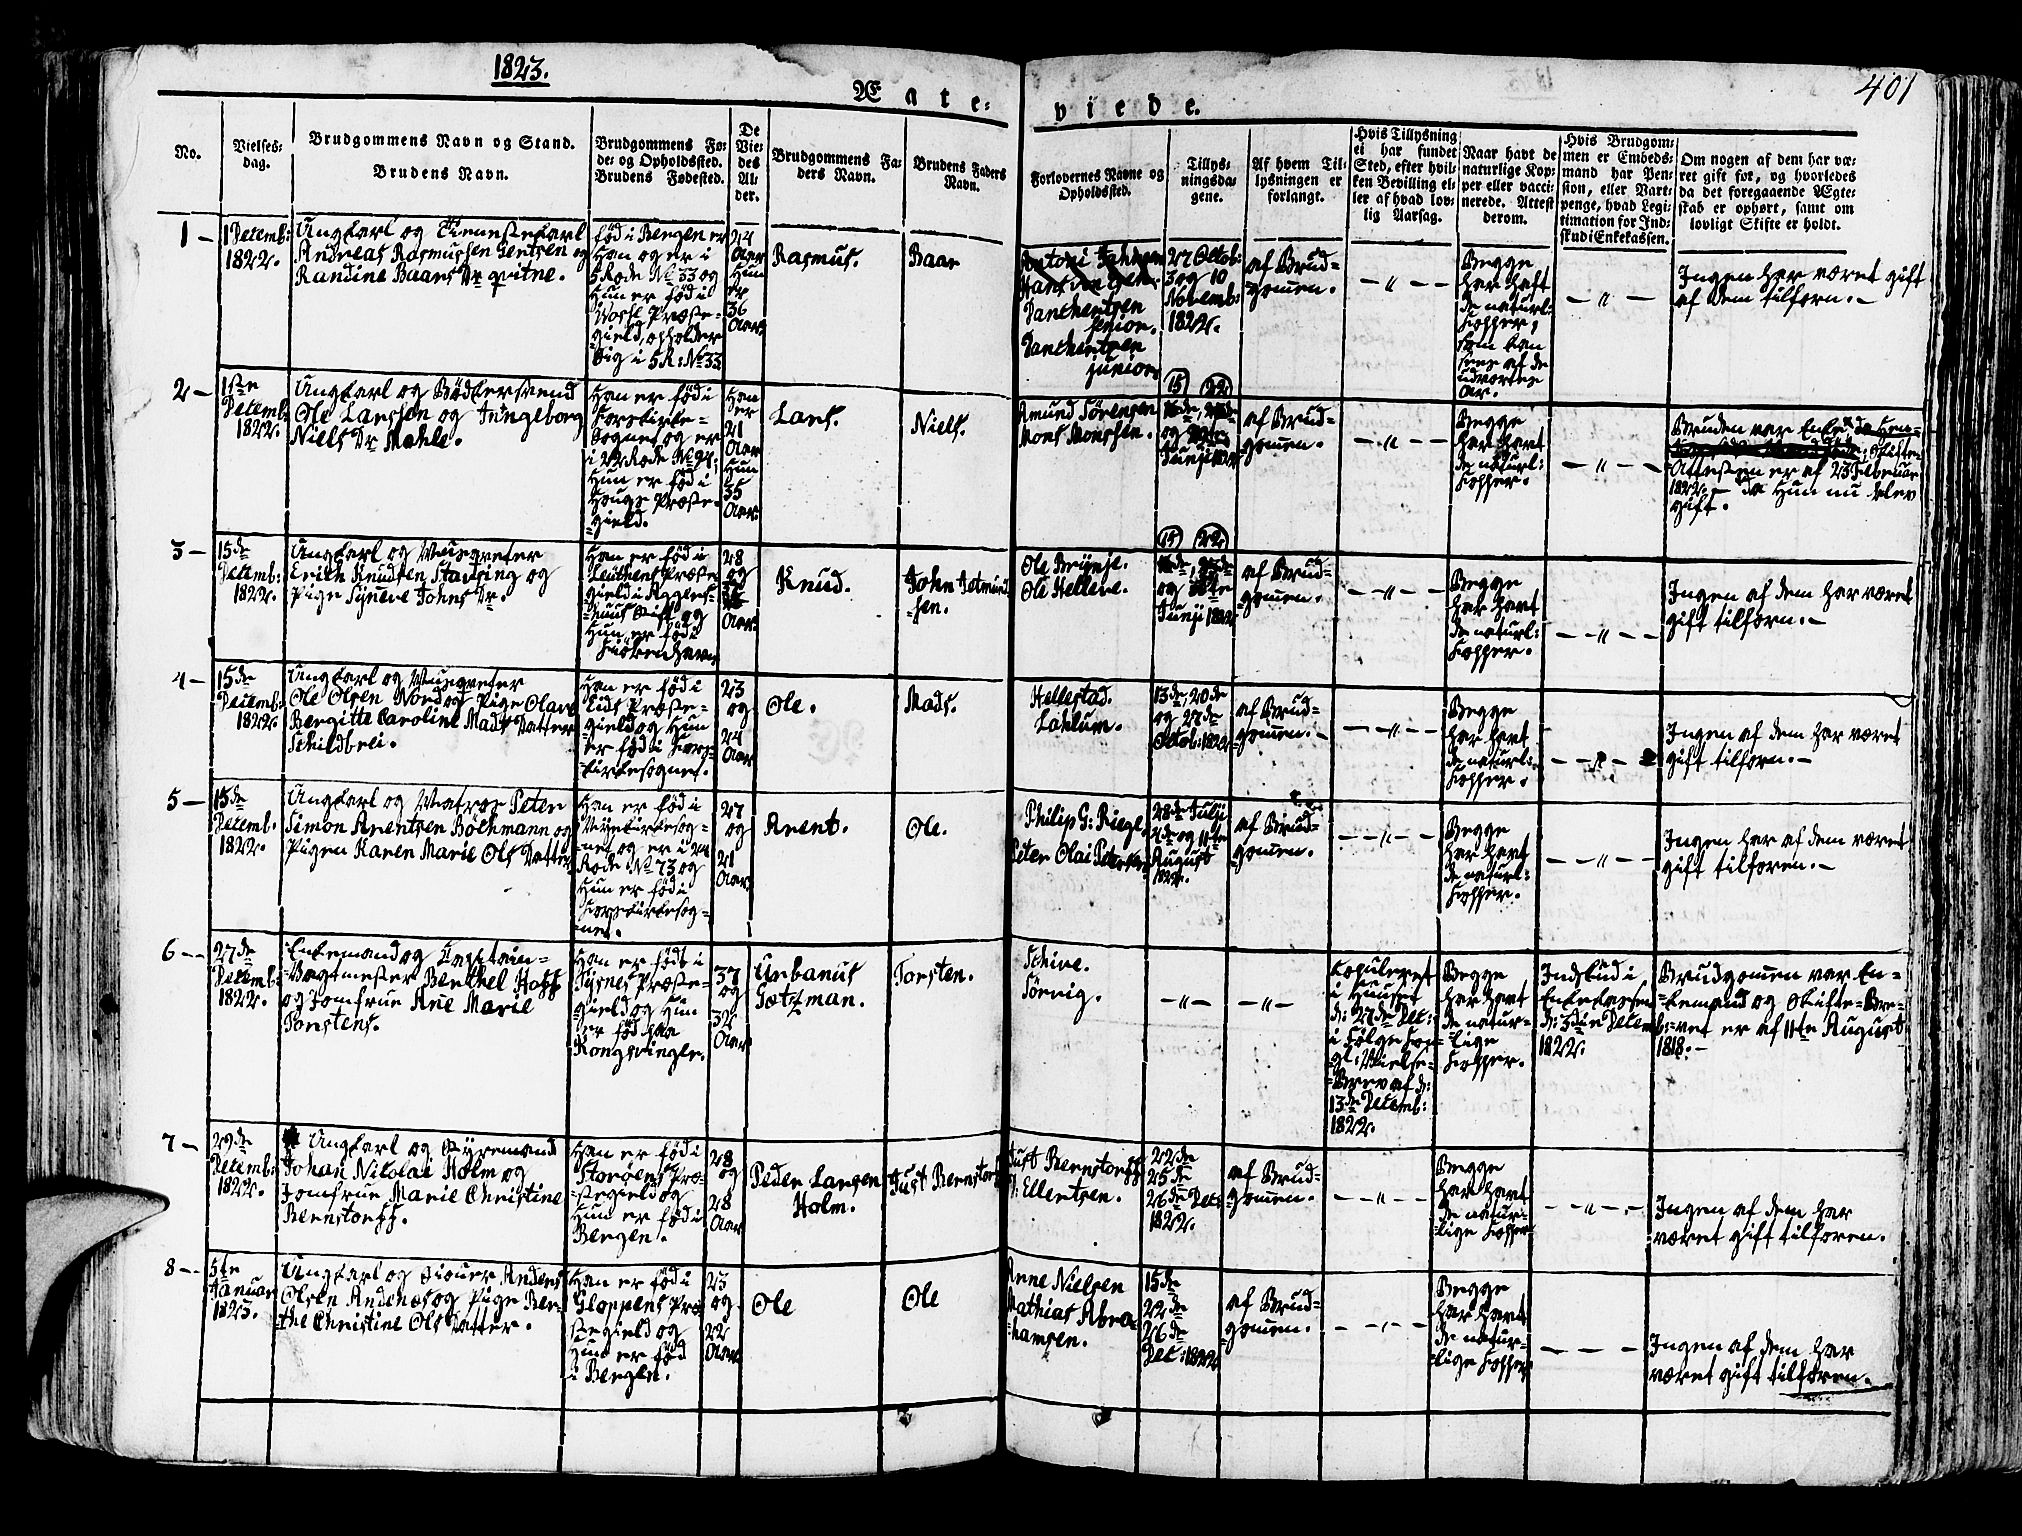 1823.
401
Ægteviede.
No.
Vielsesdag.
Brudgommens Navn og Stand.
Brudens Navn.
Brudgommens Føde- og Opholdssted.
Brudens Fødested.
De Viedes Alder.
Brudgommens Faders Navn.
Brudens Faders Navn.
Forlovernes Navne og Opholdssted.
Tillysningsdagene.
Af hvem Tillysningen er forlangt.
Hvis Tillysning ei har fundet Sted, efter hvilken Bevilling eller af hvad lovlig Aarsag.
Naar havt de naturlige Kopper eller vaccinerede. Attest derom.
Hvis Brudgommen er Embedsmand har Pension, eller Vartpenge, hvad Legitimation for Indskud i Enkekassen.
Om nogen af dem har været gift før, og hvorledes da det foregaaende Ægteskab er ophørt, samt om lovligt Skifte er holdt.
1 –
1 Decemb: 1822.
Ungkarl og Tienestekarl
Andreas Rasmussen Gentsen og
Randine Baars Dr qvitne.
født i Bergen er
Han og er i
5 Rode No 33 og
Hun er født i
Præste-
gield, opholder
Sig i 5 R: No 33
24 Aar
Hun er
36 Aar.
Rasmus.
Baar
Danckertsen
senior.
Danckertsen
junior.
27 Octob:
3 og 10
Novemb:
1822.
af Brud-
gommen.
– " –
Begge
har haft
de naturl:
Kopper,
som kan
sees af de
udvortes
Ar.
– " –
Ingen har været gift
af dem tilforn. –
2 –
1ste
Decemb:
1822.
Ungkarl og Bødkersvend
Ole Larssen og Ingeborg
Niels Dr Mæhle.
Han er født i
Korskirke-
Sognet og er
i 22 Rode No 94;
Hun er født i
Houge Præste-
gield.
Han
er
21
Aar
Hun
35
Aar.
Lars.
Niels.
Amund Sørensen
Mons Monssen.
(15) (22)
og
Junji 1822
af Brud-
gommen.
– " –
Begge
har havt
de naturl:
Kopper.
– " –
Bruden var Enke
Skifte-
Attesten er af 23 Februar
1822. – da Hun nu blev
gift.
3 –
15de
Decemb:
1822.
Ungkarl og Muusqveteer
Erich Knudsen Stamsing og
Pige Syneve Johns Dr.
Han er født i
Præste-
gield i Agger-
huus Stift, og
Hun er født i
28
og
Aar.
Knud.
John Jetmund-
sen.
Ole Brynje.
Ole Hellene.
(15) (22)
og
Junji 1822
af Brud-
gommen.
– " –
Begge
har havt
de naturl:
Kopper.
– " –
Ingen af dem har været
gift tilforn. –
4 –
15de
Decemb:
1822.
Ungkarl og Musqveteer
Ole Olsen Nord og Pige Olave
Bergitte Caroline Mads Datter
Schildbrei.
Han er født i
Eids Præste-
gield og Hun
er født i Kors-
kirkesognet.
23
og
24
Aar
Ole.
Mads.
Hellestad.
Lahlum.
13de, 20de
og 27de
Octob: 1822
af Brud-
gommen. –
– " –
Begge
har havt
de naturl:
Kopper.
– " –
Ingen af dem har været
gift tilforn. –
5 –
15de
Decemb.
1822.
Ungkarl og Matros Peter
Simon Arentsen Böchmann og
Pigen Karen Marie Ols Datter
Han er født i
Nyekirkesog-
net og er i 24
Rode No 73 og
Hun er født i
Korskirkesog-
net.
27
og
21
Aar
Arent.
Ole.
Philip G: Riegel,
Peter Olai Petersen
28de Julji
4de og 11te
August
1822.
af Brud-
gommen.
– " –
Begge
har havt
de naturl:
Kopper.
– " –
Ingen har af dem været
gift tilforen. –
6 –
27de
Decemb:
1822.
Enkemand og Capitain-
Vagtmester Berthel Hoff
og Jomfrue Ane Marie
Torstens.
Han er født i
Tysnes Præste-
gield og Hun
er født paa
Kongsvinger.
37
og
32
Aar
Urbanus
Gøtzman.
Torsten.
Schive.
Sørvig.
– " –
– " –
Copuleret
i Huuset
d: 27de Dec:
i Følge Kon-
gl: Vielse-
Brev af d:
13de Decemb:
1822.
Begge
har havt
de natur-
lige
Kopper.
Indskud i
Enkekassen
d: 3die Decem
1822.
Brudgommen var En-
kemand og Skifte-Bre-
vet er af 11te August
1818. –
7 –
29de
Decemb:
1822.
Ungkarl og Styremand
Johan Nicolai Holm og
Jomfrue Marie Christine
Bernstorff.
Han er født i
Storøens Præ-
stegield og
Hun er født i
Bergen.
28
og
28
Aar
Peder Larsen
Holm.
Just Bernstorff
Just Bernstorff
Ellertsen.
22de
25de
26de Dec:
1822.
af Brud-
gommen.
– " –
Begge
har havt
de natur-
lige Kopper
– " –
Ingen af dem har
været gift tilforen.
8 –
5te
Januar
1823.
Ungkarl og Anders
Olsen Andenæs og Pige Ber-
the Christine Ols Datter.
Han er født i
Gloppens Præ-
stegield og
Hun er født
i Bergen.
23
og
22
Aar.
Ole
Ole
Arne Nielsen
Mathias Abra-
hamsen.
15de
22de
26de
Dec: 1822
af Brud-
gommen.
– " –
Begge
har havt
de natur-
lige Kopper
– – –
Ingen af dem har
været gift tilforen.